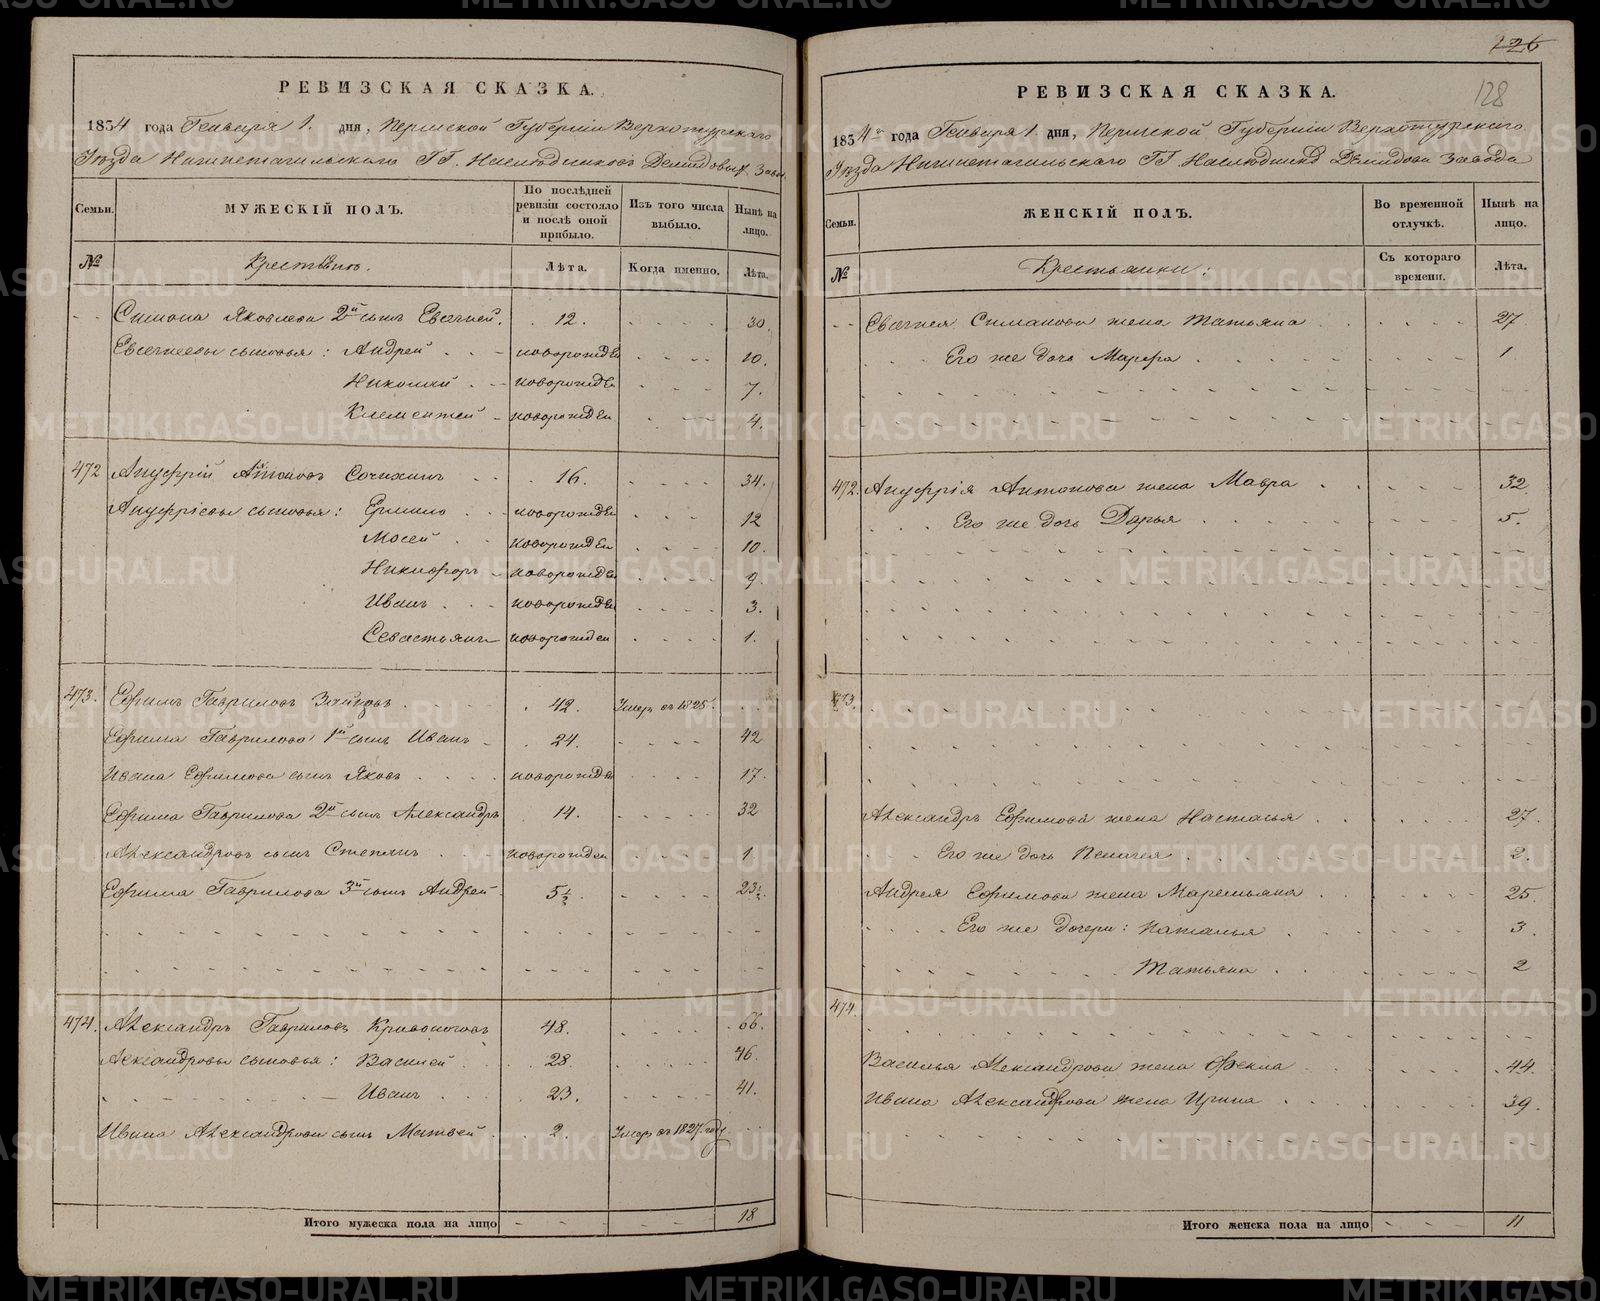 126
128
РЕВИЗСКАЯ СКАЗКА.
1834 года Генваря 1. дня, Пермской Губернии Верхотурскаго
Уезда Нижнетагильскаго ГГ. Наследниковъ Демидовыхъ Заво.
Семьи.
МУЖЕСКІЙ ПОЛЪ.
По послѣдней ревизіи состояло и послѣ оной прибыло.
Изъ того числа выбыло.
Нынѣ на лицо.
№
Крестьянъ.
Лѣта.
Когда именно.
Лѣта.
Симона Яковлева 2й сынъ Евсегней. 12. 30.
Евсегнеевы сыновья: Андрей новорожден 10.
Николай новорожден 7.
Клементей новорожден 4.
472 Ануфрій Антоновъ Сочихинъ 16. 34.
Ануфріевы сыновья: Ермило новорожден 12
Мосей новорожден 10.
Никифоръ новорожден 9.
Иванъ новорожден 3.
Севастьянъ новорожден 1.
473. Ефимъ Гавриловъ Зайцовъ 42. Умеръ въ 1825.
Ефима Гаврилова 1й сынъ Иванъ 24. 42
Ивана Ефимова сынъ Яковъ новорожден 17.
Ефима Гаврилова 2й сынъ Александръ 14. 32
Александровъ сынъ Степанъ новорожден 1
Ефима Гаврилова 3й сынъ Андрей 5½. 23½.
474. Александръ Гавриловъ Кривоноговъ 48. 66.
Александровы сыновья: Василей 28. 46.
Иванъ 23. 41.
Ивана Александрова сынъ Матвей 2. Умеръ въ 1827. году
Итого мужеска пола на лицо 18
РЕВИЗСКАЯ СКАЗКА.
1834го года Генваря 1. дня, Пермской Губернии Верхотурскаго
Уезда Нижнетагильскаго ГГ Наследниковъ Демидовы Завода
Семьи.
ЖЕНСКІЙ ПОЛЪ.
Во временной отлучкѣ.
Нынѣ на лицо.
№
Крестьянки:
Съ котораго времени.
Лѣта.
Евсегнея Симанова жена Татьяна 27
Его же дочь Марфа 1
472. Ануфрія Антонова жена Мавра 32
Его же дочь Дарья 5.
473.
Александръ Ефимова жена Настасья 27.
Его же дочь Пелагея 2.
Андрея Ефимова жена Маремьяна 25
Его же дочери: Наталья 3.
Татьяна 2
474.
Василья Александрова жена Фекла 44.
Ивана Александрова жена Ирина 39.
Итого женска пола на лицо 11
METRIKI.GASO-URAL.RU